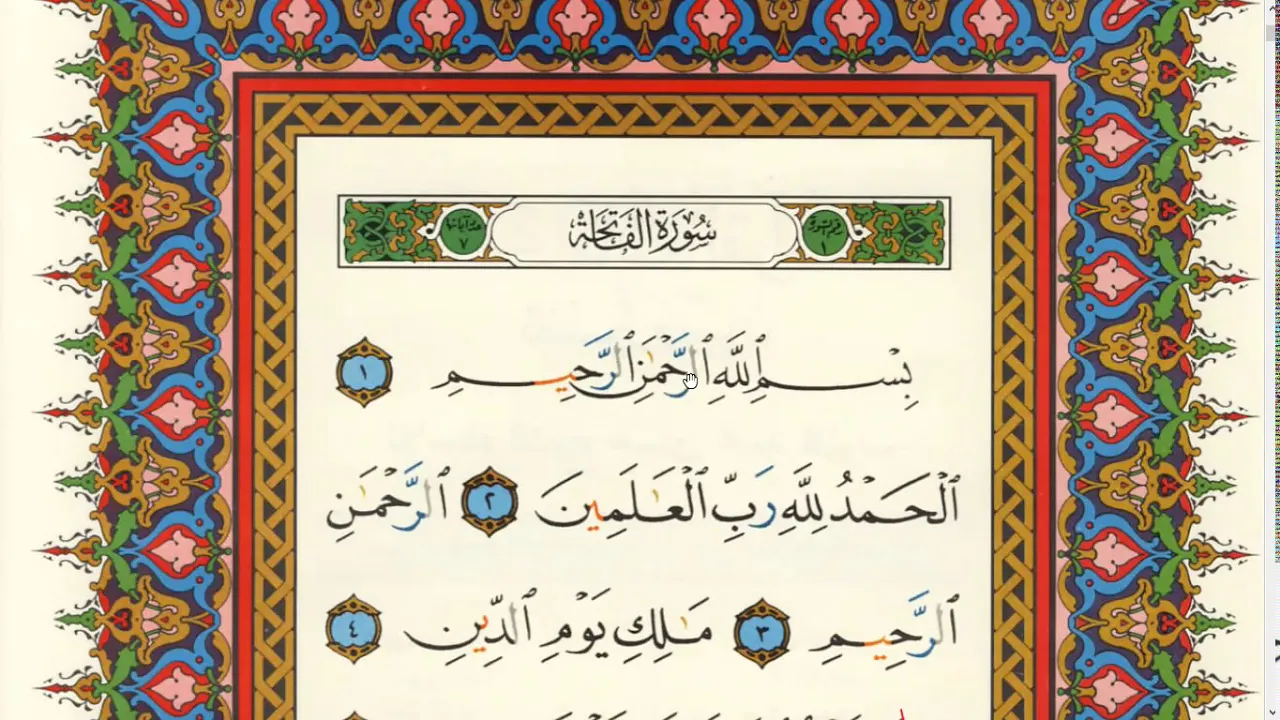 سُورَةُ الفَاتِحَة
١
٧
بِسْمِ ٱللَّهِ ٱلرَّحْمَٰنِ ٱلرَّحِيمِ ١
ٱلْحَمْدُ لِلَّهِ رَبِّ ٱلْعَٰلَمِينَ ٢ ٱلرَّحْمَٰنِ
ٱلرَّحِيمِ ٣ مَٰلِكِ يَوْمِ ٱلدِّينِ ٤